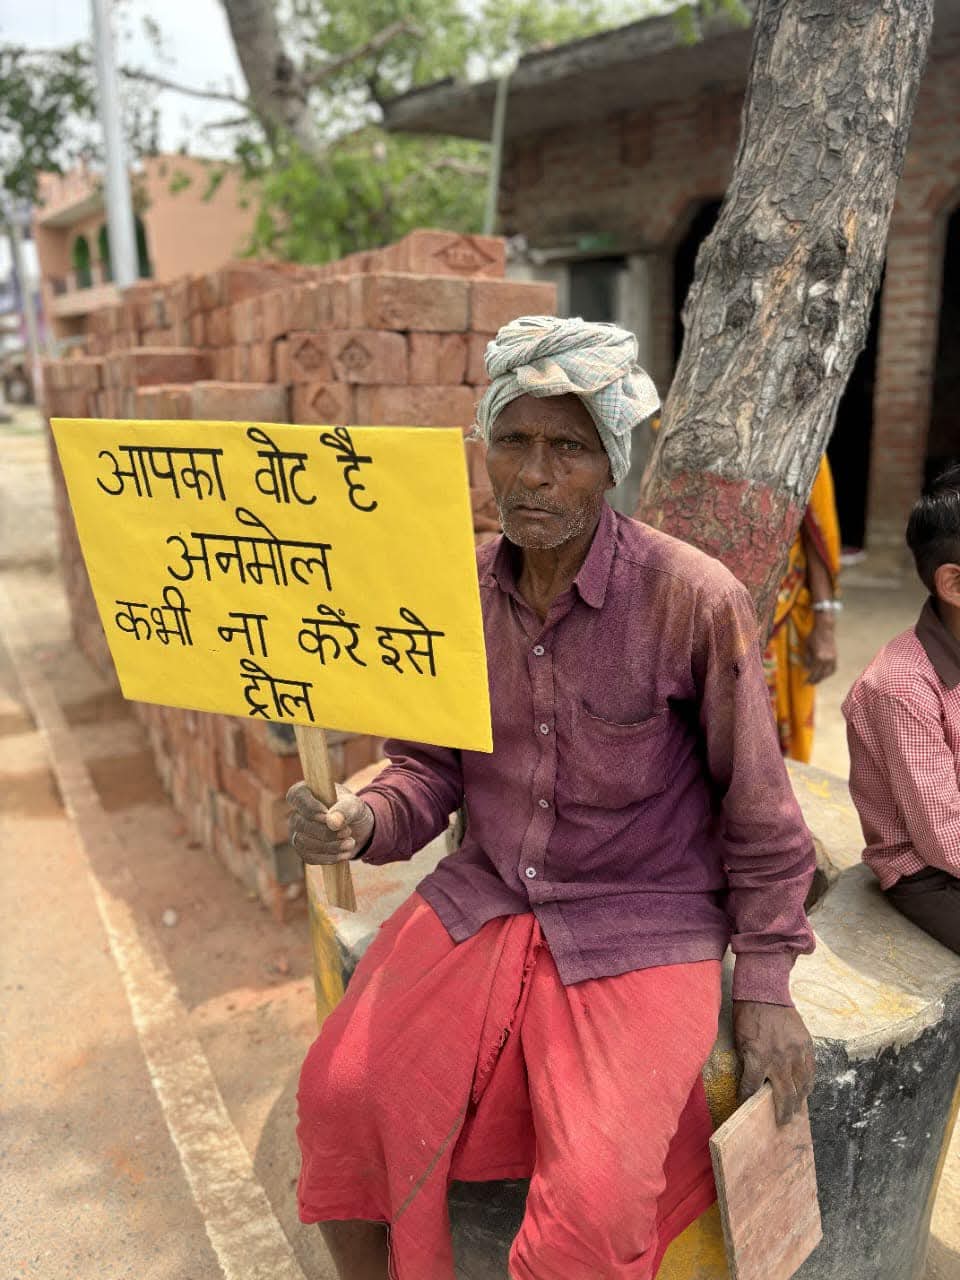 आपका वोट है
अनमोल
कभी ना करें इसे
ट्रोल